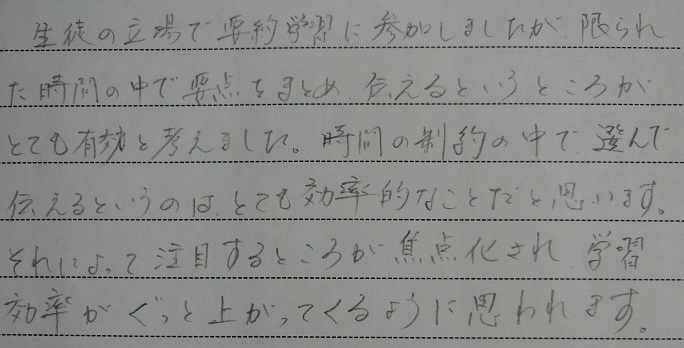 生徒の立場で要約学習に参加しましたが 限られ
た時間の中で要点をまとめ 伝えるというところが
とても有効と考えました。時間の制約の中で 選んで
伝えるというのは とても効率的なことだと思います。
それによって注目するところが焦点化され 学習
効率がぐっと上がってくるように思われます。